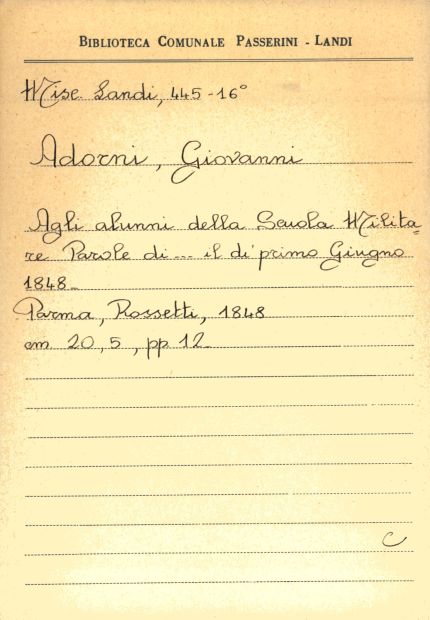 BIBLIOTECA COMUNALE PASSERINI - LANDI
Misc. Landi, 445-16°
Adorni, Giovanni
Agli alunni della Scuola Milita=
re Parole di... il di' primo Giugno
1848.
Parma, Rossetti, 1848
cm. 20,5, pp. 12.
C